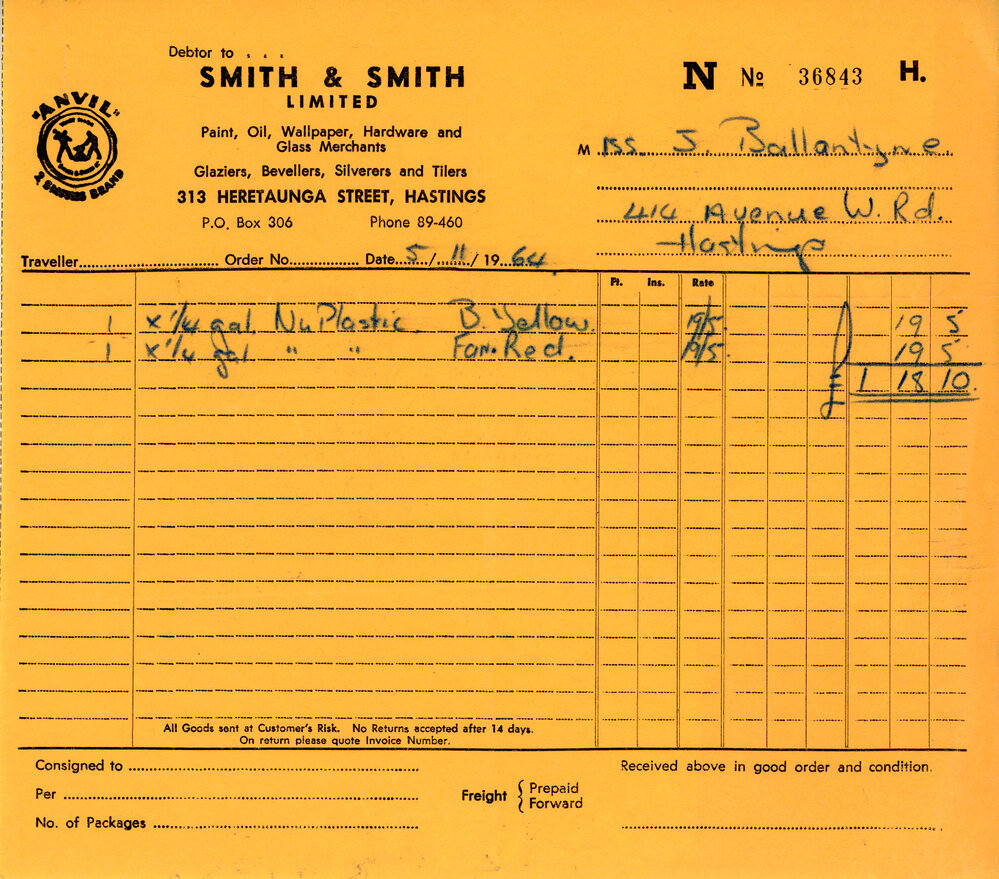 Debtor to . . .
SMITH & SMITH
LIMITED
Paint, Oil, Wallpaper, Hardware and
Glass Merchants
Glaziers, Bevellers, Silverers and Tilers
313 HERETAUNGA STREET, HASTINGS
P.O. Box 306 Phone 89-460
"ANVIL"
2 SMITHS BRAND
N No 36843 H.
Miss. J. Ballantyne.
414 Avenue W. Rd.
Hastings
Traveller Order No. Date 5/11/1964.
Ft. Ins. Rate
1 x 1/4 gal. NuPlastic. B. Yellow. 19/5. 19 5
1 x 1/4 gal " " Fan. Red. 19/5. 19 5
£ 1 18 10.
All Goods sent at Customer's Risk. No Returns accepted after 14 days.
On return please quote Invoice Number.
Consigned to
Per
No. of Packages
Freight { Prepaid
Forward
Received above in good order and condition.